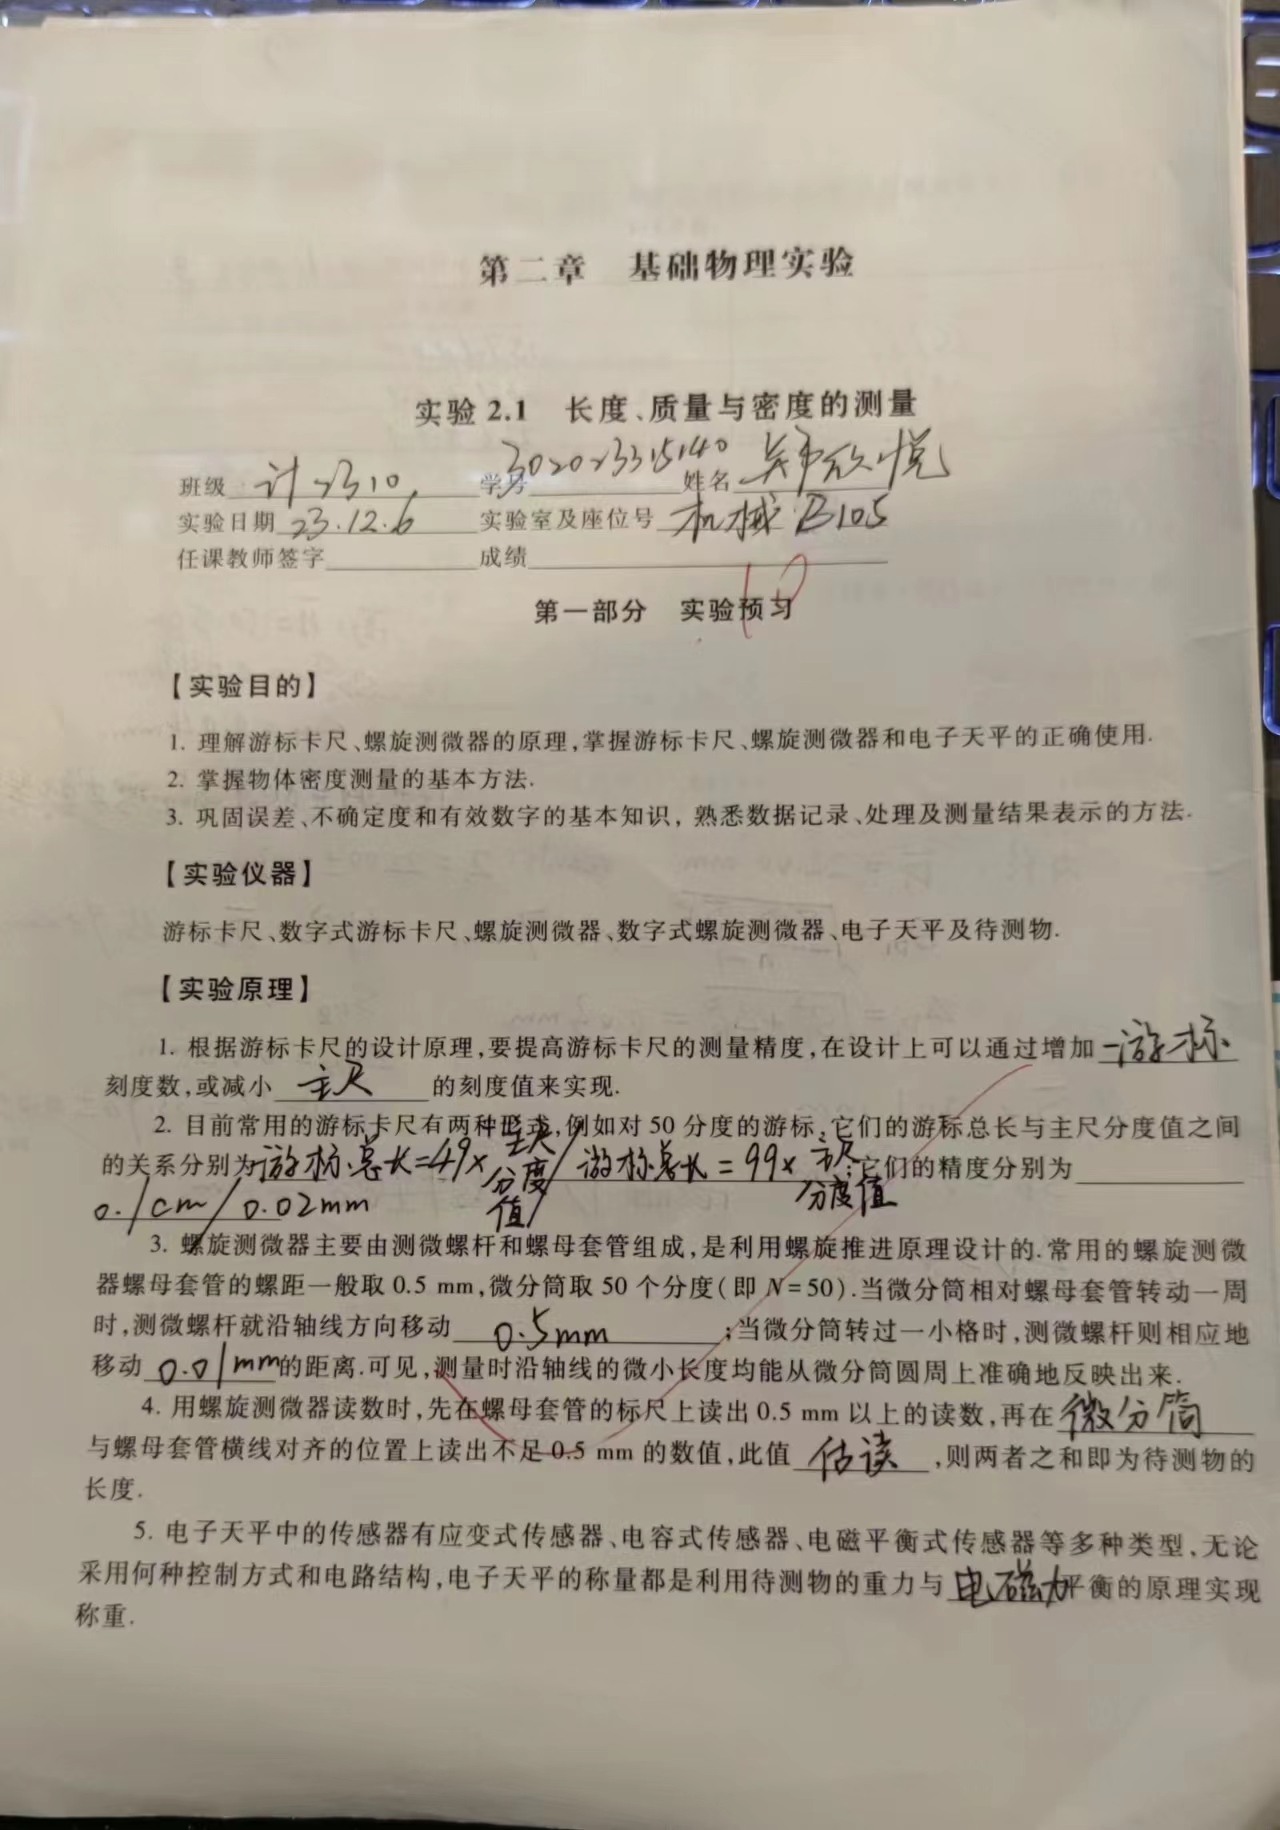 第二章 基础物理实验
实验 2.1 长度、质量与密度的测量
班级 计2310 学号 302023315140 姓名 吴欣悦
实验日期 23.12.6 实验室及座位号 机械 B105
任课教师签字 成绩
10
第一部分 实验预习
【实验目的】
1. 理解游标卡尺、螺旋测微器的原理,掌握游标卡尺、螺旋测微器和电子天平的正确使用.
2. 掌握物体密度测量的基本方法.
3. 巩固误差、不确定度和有效数字的基本知识, 熟悉数据记录、处理及测量结果表示的方法.
【实验仪器】
游标卡尺、数字式游标卡尺、螺旋测微器、数字式螺旋测微器、电子天平及待测物.
【实验原理】
1. 根据游标卡尺的设计原理,要提高游标卡尺的测量精度,在设计上可以通过增加 游标
刻度数,或减小 主尺 的刻度值来实现.
2. 目前常用的游标卡尺有两种形式,例如对 50 分度的游标,它们的游标总长与主尺分度值之间
的关系分别为 游标总长=49×主尺分度值/ 游标总长=99×主尺分度值;它们的精度分别为
0.1cm/0.02mm
3. 螺旋测微器主要由测微螺杆和螺母套管组成,是利用螺旋推进原理设计的.常用的螺旋测微
器螺母套管的螺距一般取 0.5 mm,微分筒取 50 个分度(即 N=50).当微分筒相对螺母套管转动一周
时,测微螺杆就沿轴线方向移动 0.5mm ;当微分筒转过一小格时,测微螺杆则相应地
移动 0.01mm 的距离.可见,测量时沿轴线的微小长度均能从微分筒圆周上准确地反映出来.
4. 用螺旋测微器读数时,先在螺母套管的标尺上读出 0.5 mm 以上的读数,再在 微分筒
与螺母套管横线对齐的位置上读出不足 0.5 mm 的数值,此值 估读 ,则两者之和即为待测物的
长度.
5. 电子天平中的传感器有应变式传感器、电容式传感器、电磁平衡式传感器等多种类型,无论
采用何种控制方式和电路结构,电子天平的称量都是利用待测物的重力与 电磁力 平衡的原理实现
称重.